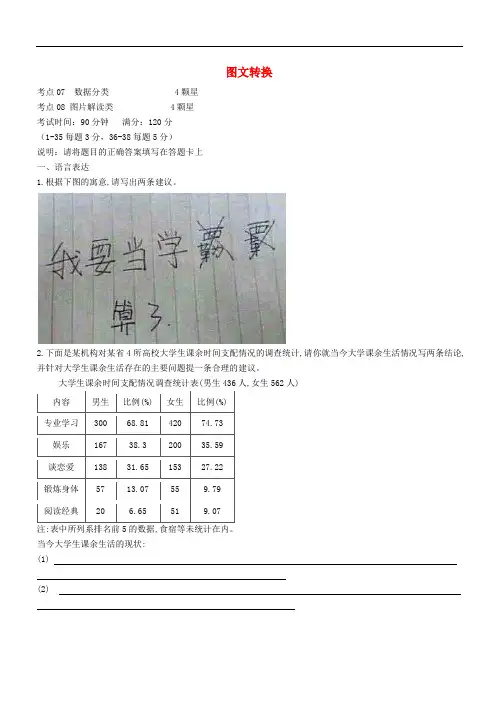 图文转换
考点07 数据分类 4颗星
考点08 图片解读类 4颗星
考试时间：90分钟 满分：120分
（1-35每题3分，36-38每题5分）
说明：请将题目的正确答案填写在答题卡上
一、语言表达
1.根据下图的寓意,请写出两条建议。
我要当学
算了.
2.下面是某机构对某省4所高校大学生课余时间支配情况的调查统计,请你就当今大学课余生活情况写两条结论,
并针对大学生课余生活存在的主要问题提一条合理的建议。
大学生课余时间支配情况调查统计表(男生436人,女生562人)
内容 男生 比例(%) 女生 比例(%)
专业学习 300 68.81 420 74.73
娱乐 167 38.3 200 35.59
谈恋爱 138 31.65 153 27.22
锻炼身体 57 13.07 55 9.79
阅读经典 20 6.65 51 9.07
注:表中所列系排名前5的数据,食宿等未统计在内。
当今大学生课余生活的现状:
(1)
(2)